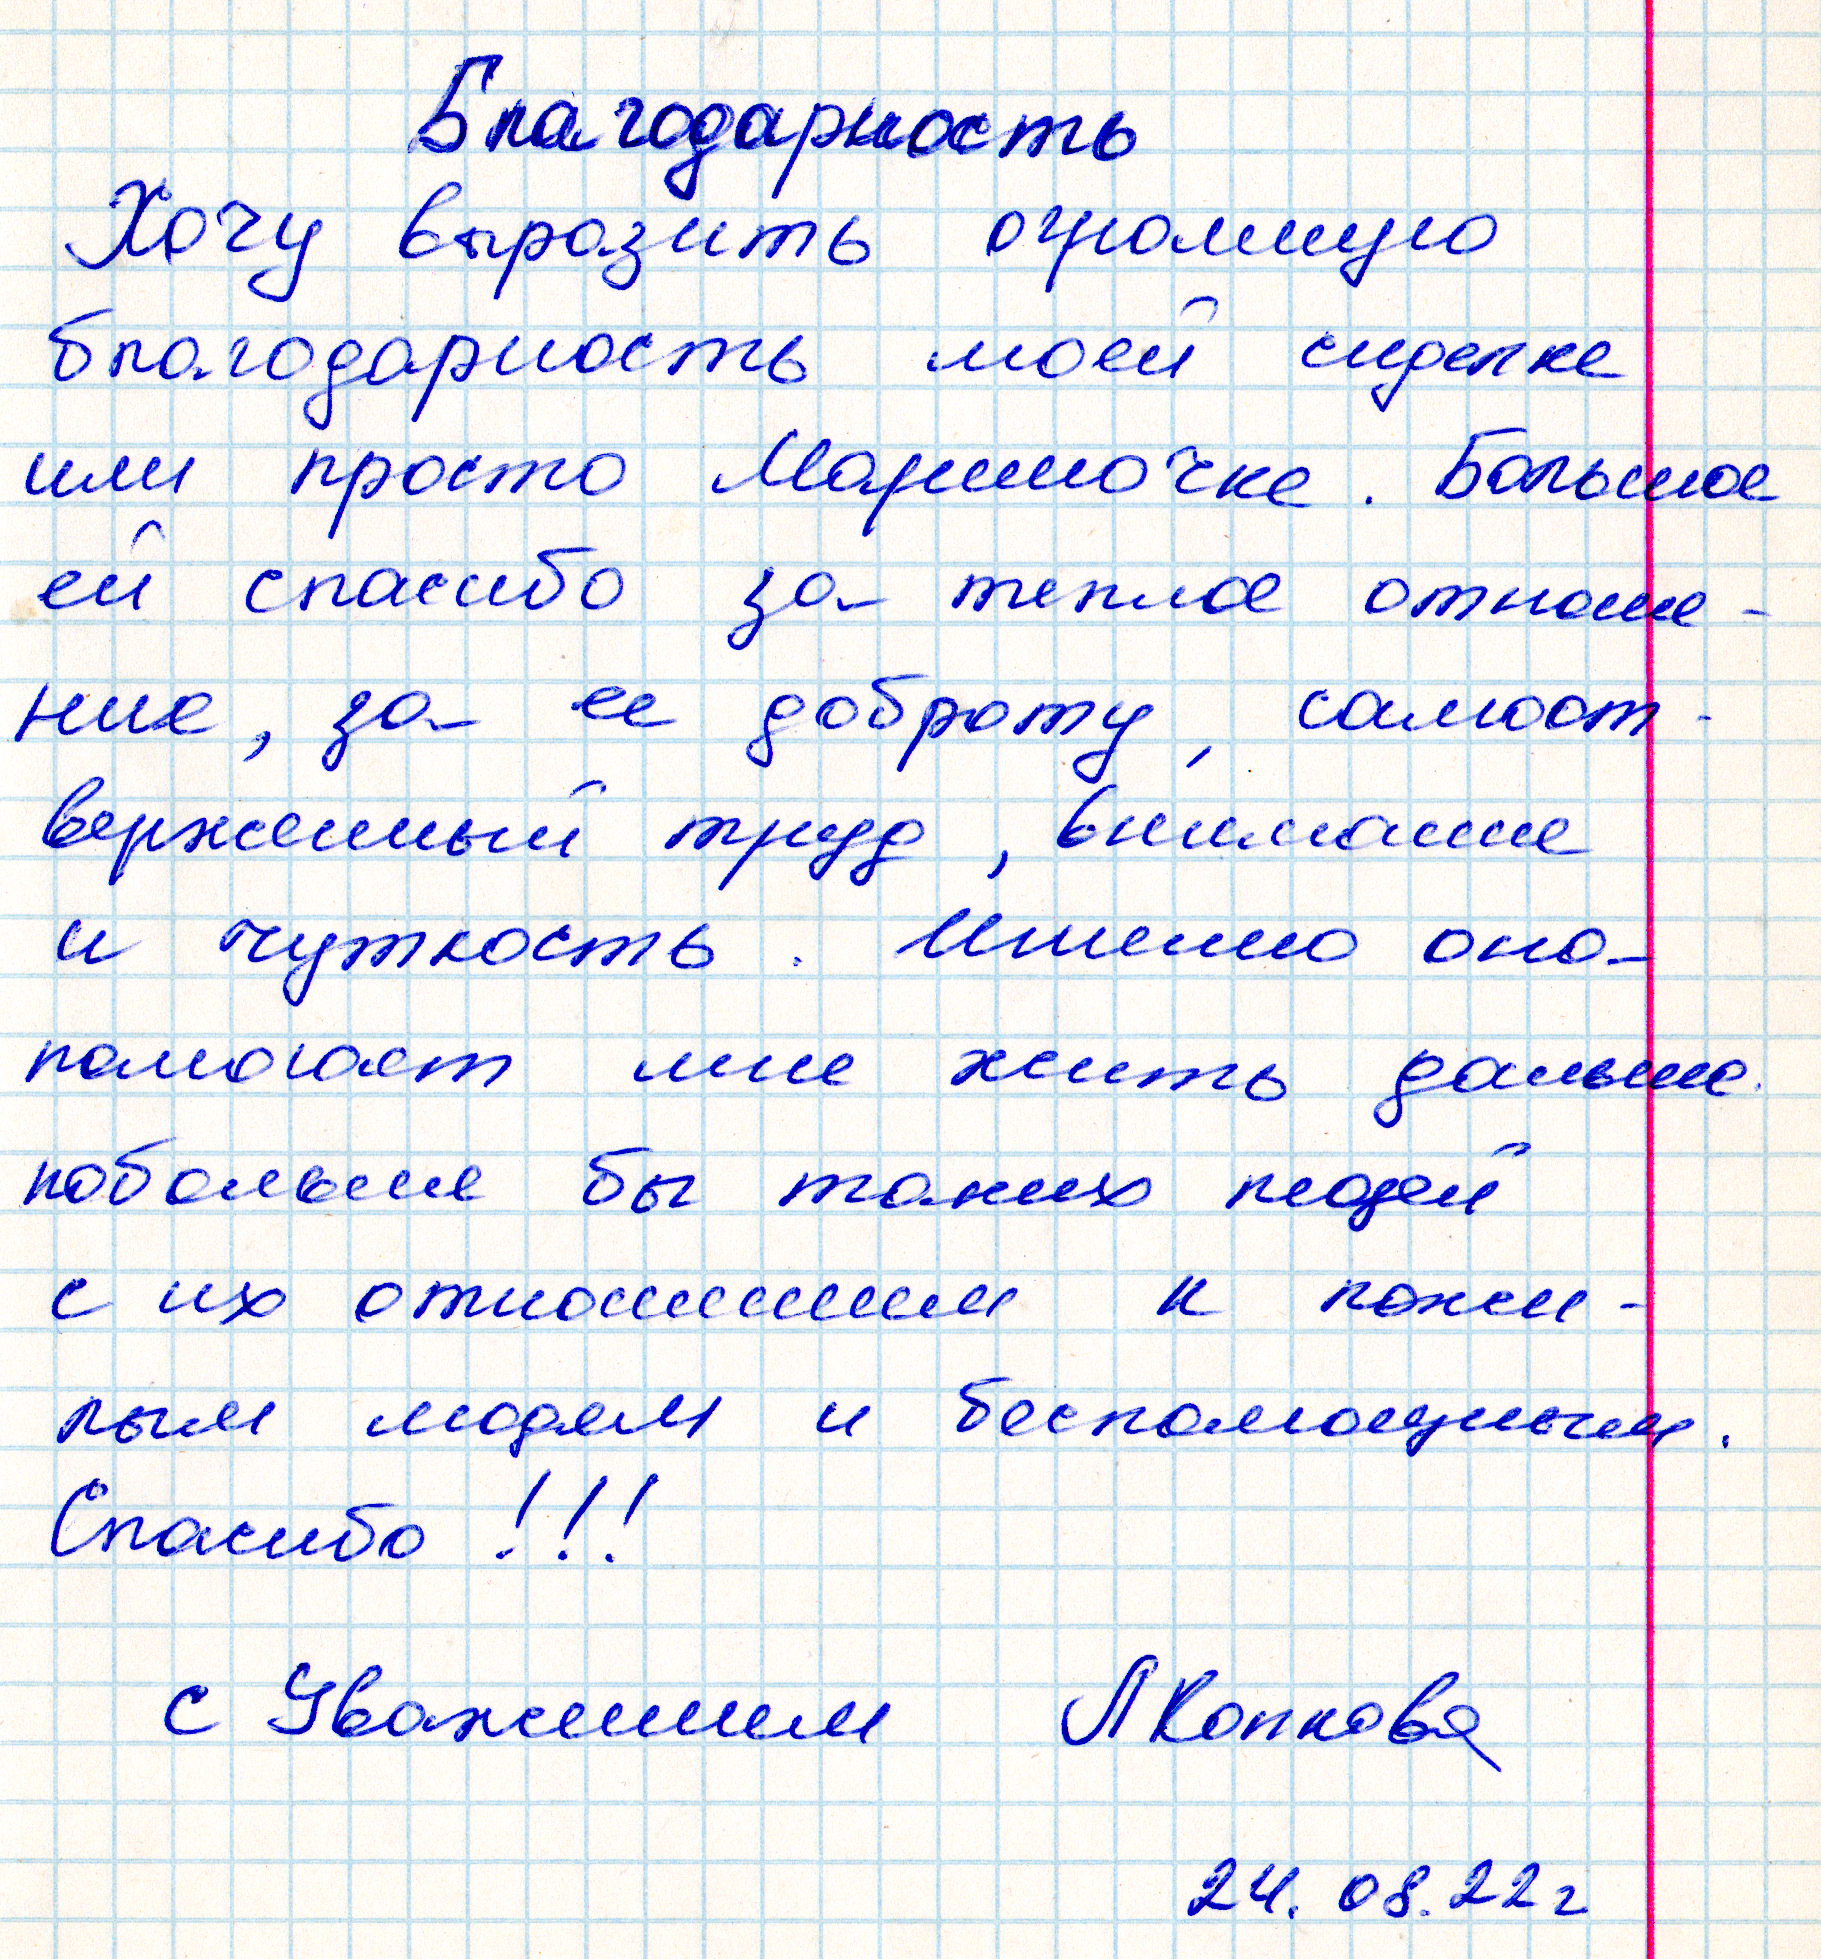 Благодарность
Хочу выразить огромную
благодарность моей сиделке
или просто Мариночке. Большое
ей спасибо за теплое отноше-
ние, за ее доброту, самоот-
верженный труд, внимание
и чуткость. Именно она
помогает мне жить дальше.
побольше бы таких людей
с их отношением к пожи-
лым людям и беспомощным.
Спасибо!!!
с Уважением ЛКопкова
24.08.22г